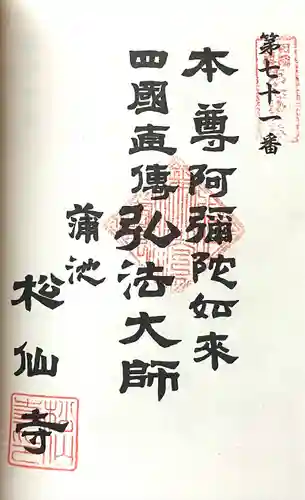 第七十一番
本尊阿彌陀如来
四國直傳弘法大師
蒲池
松仙寺